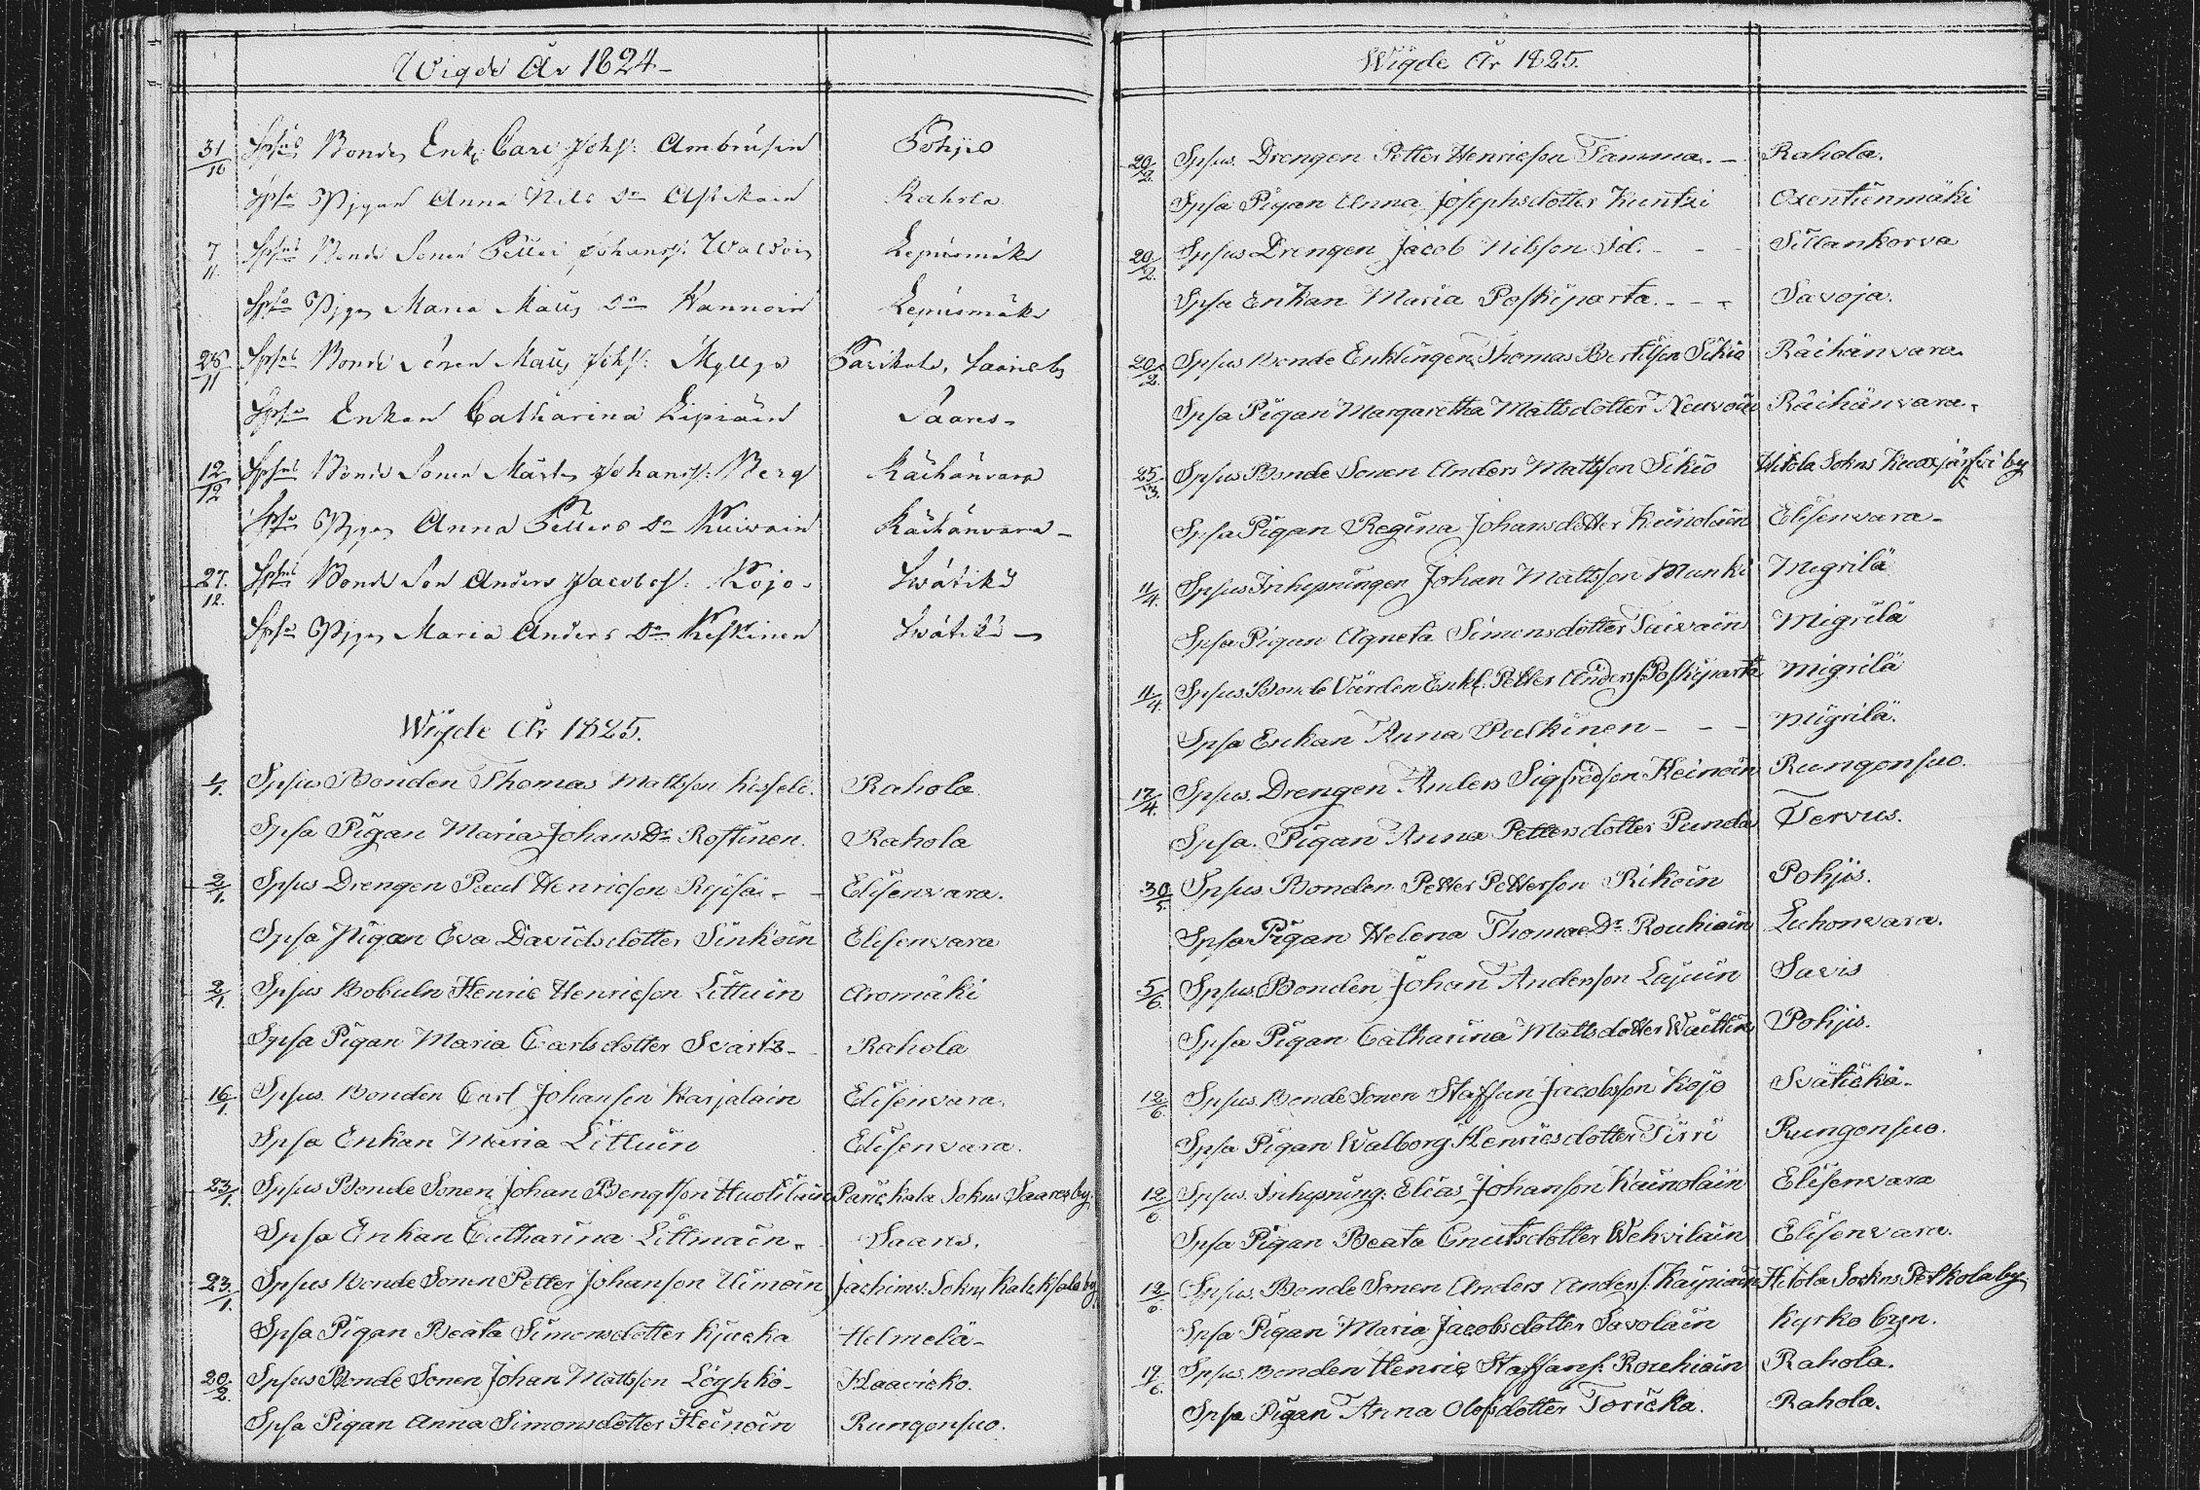 Wigde År 1824
31/10 Spsus Bonden Enkl. Carl Johs: Ambrusin Pohjis
Spsa Pigan Anna Nils Dr Asikain Rahola
7/11 Spsus Bonde Sonen Petter Johanss: Waldoin Lepiismäki
Spsa Pigan Maria Matts Dr Wannoin Lepiismäki
28/11 Spsus Bonde Sonen Matts Johs: Myllys Parikala, Saaris by
Spsa Enkan Catharina Lipiäin Saares
12/12 Spsus Bonde Sonen Mårten Johanss: Berg Räihänvara
Spsa Pigan Anna Petters Dr Kuivain Räihänvara
27/12 Spsus Bonde Son Anders Jacobss: Kojo Svätikä
Spsa Pigan Maria Anders Dr Keskinen Svätikä
Wigde År 1825.
1/1. Spsus Bonden Thomas Mattsson Rahola.
Spsa Pigan Maria Johans Dr Rostinen. Rahola
2/1. Spsus Drengen Paul Henricson Elisenvara.
Spsa Pigan Eva Davidsdotter Sinkoin Elisenvara
2/1. Spsus Bobuln Henric Henricson Littuin Aromäki
Spsa Pigan Maria Carlsdotter Svarts Rahola
16/1 Spsus Bonden Carl Johanson Karjalain Elisenvara.
Spsa Enkan Maria Littuin Elisenvara.
23/1. Spsus Bonde Sonen Johan Bengtson Huolilain Parickala Sokns Saares by.
Spsa Enkan Catharina Littmain Saaris.
23/1. Spsus Bonde Sonen Petter Johanson Uimoin Jachimv. Sokns by
Spsa Pigan Beata Simonsdotter Kjucka Helmelä
20/2. Spsus Bonde Sonen Johan Mattsson Löghkö Haavicko.
Spsa Pigan Anna Simonsdotter Heinoin Rungonsuo.
Wigde År 1825.
20/2. Spsus Drengen Petter Henricson Tamma. Rahola.
Spsa Pigan Anna Josephsdotter Kuntzi Oxentienmäki
20/2. Spsus Drengen Jacob Nilsson Id. Sillankorva
Spsa Enkan Maria Poskiparta. Savoja.
20/2. Spsus Bonde Enklingen Thomas Bertilson Sikiö Räihänvara.
Spsa Pigan Margaretha Mattsdotter Neuvoin Räihänvara.
25/3. Spsus Bonde Sonen Anders Mattsson Sikiö Hitola Sokns by
Spsa Pigan Regina Johansdotter Elisenvara
11/4. Spsus Inhysningen Johan Mattsson Munki Migrilä
Spsa Pigan Agneta Simonsdotter Taivain Migrilä
11/4. Spsus Bonde Värden Enkl. Petter Anderss: Poskiparta Migrilä
Spsa Enkan Anna Pulkinen Migrilä.
17/4. Spsus. Drengen Anders Sigfridson Heinoin Rungonsuo.
Spsa. Pigan Anna Pettersdotter Punda Tervus.
30/5. Spsus Bonden Petter Petterson Rikoin Pohjis.
Spsa Pigan Helena Thomae Dr Rouhiain Luhonvara.
5/6. Spsus Bonden Johan Anderson Lajuin Savis
Spsa Pigan Catharina Mattsdotter Wäittin Pohjis.
12/6. Spsus Bonde Sonen Staffan Jacobsson Kojo Svätickä
Spsa Pigan Walborg Henricsdotter Tirri Rungonsuo.
12/6 Spsus. Inhysning: Elias Johanson Kainolain Elisenvara
Spsa Pigan Beata Cnutsdotter Wehvilain Elisenvara.
12/6 Spsus. Bonde Sonen Anders Anderss: Kaipiain Hitola Sockns Petkola by.
Spsa Pigan Maria Jacobsdotter Savolain Kyrko byn.
17/6. Spsus. Bonden Henric Staffans: Rouhiain Rahola.
Spsa Pigan Anna Olofsdotter Toricka. Rahola.